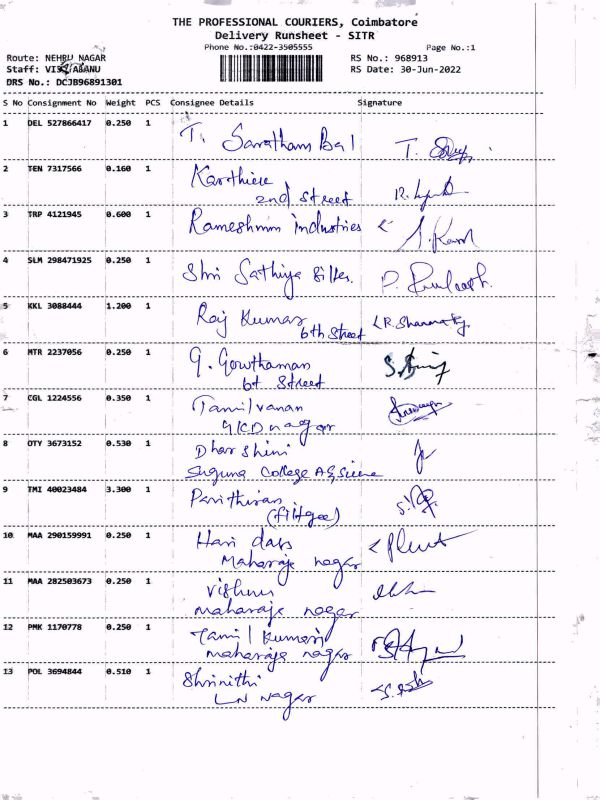 THE PROFESSIONAL COURIERS, Coimbatore
Delivery Runsheet - SITR
Phone No.:0422-3505555 Page No.:1
Route: NEHRU NAGAR RS No.: 968913
Staff: RS Date: 30-Jun-2022
DRS No.: DCJB96891301
S No Consignment No Weight PCS Consignee Details Signature
1 DEL 527866417 0.250 1 T. Saratham Bal T.
2 TEN 7317566 0.160 1 Karthice
2nd street
3 TRP 4121945 0.600 1 Rameshmm industries
4 SLM 298471925 0.250 1 Shri Sathiya Silks. P.
5 KKL 3088444 1.200 1 Raj Kumar
6th Street
6 MTR 2237056 0.250 1 G. Gowthaman
6t Street
7 CGL 1224556 0.350 1 Tamilvanan
nagar
8 OTY 3673152 0.530 1 Dharshini
Suguna College
9 TMI 40023484 3.300 1
10 MAA 290159991 0.250 1 Hari dass
Maharaje nagar
11 MAA 282503673 0.250 1 Vishnu
maharaje nagar
12 PMK 1170778 0.250 1 Tamil Kumari
maharaje nagar
13 POL 3694844 0.510 1 Shrinithi
LN nagar